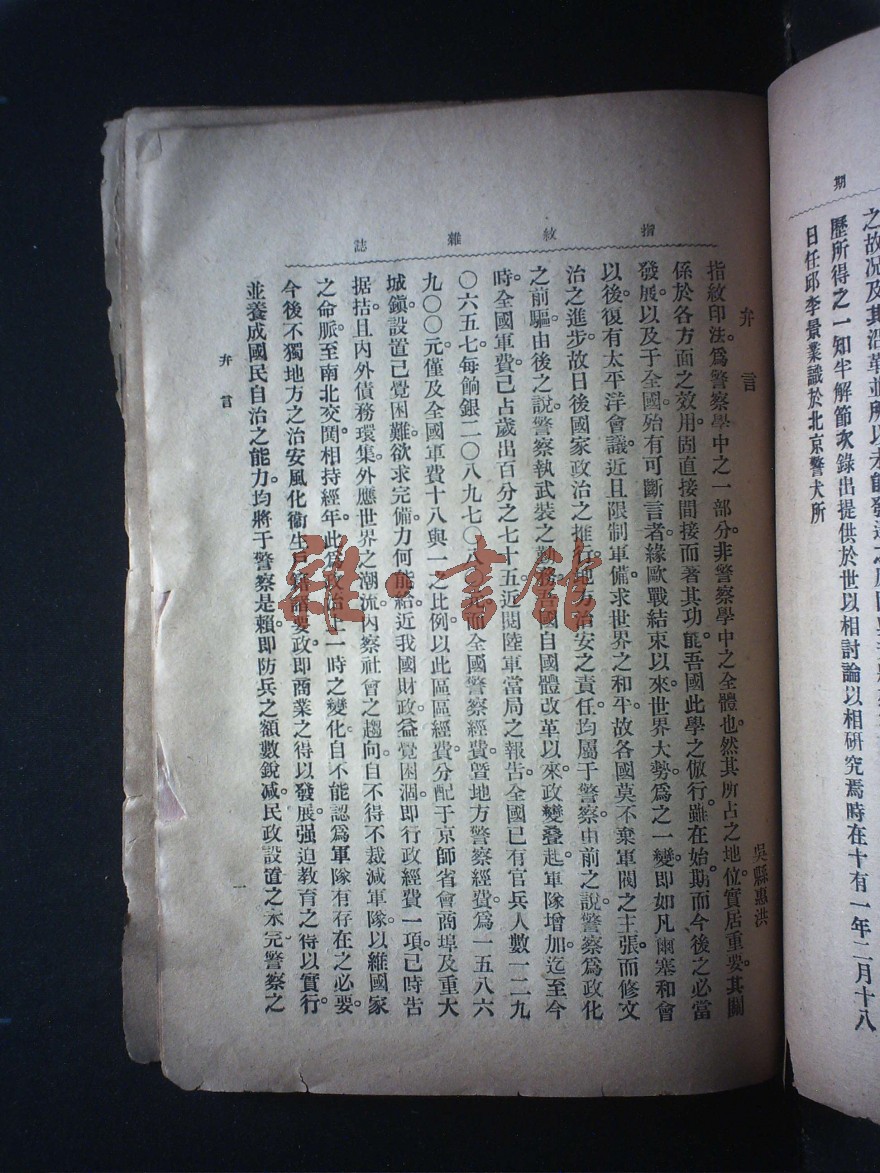 期
之故况及其沿革並所以未能發達之原因與
歷所得之一知半解節次錄出提供於世以相討論以相研究焉時在十有一年二月十八
日任邱李景業識於北京警犬所
指紋雜誌
弁言
吳縣惠洪
指紋印法。爲警察學中之一部分。非警察學中之全體也。然其所占之地位。實居重要。其關
係於各方面之效用。固直接間接而著其功能。吾國此學之倣行。雖在始期。而今後之必當
發展。以及于全國。殆有可斷言者。緣歐戰結束以來。世界大勢。爲之一變。即如凡爾塞和會
以後。復有太平洋會議。近且限制軍備。求世界之和平。故各國莫不棄軍閥之主張。而修文
治之進步。故日後國家政治之推行。地方治安之責任。均屬于警察。由前之說。警察爲政化
之前驅。由後之說。警察執武裝之勤務。吾國自國體改革以來。政變叠起。軍隊增加。迄至今
時。全國軍費。已占歲出百分之七十五。近閱陸軍當局之報告。全國已有官兵人數一二九
〇六五七。每餉銀二〇八九七〇八 而全國警察經費。暨地方警察經費。爲一五八六
九〇〇元。僅及全國軍費十八與一之比例。以此區區經費。分配于京師省會商埠及重大
城鎭。設置已覺困難。欲求完備。力何能給。近我國財政。益覺困涸。即行政經費一項。已時告
据拮。且內外債務環集。外應世界之潮流。內察社會之趨向。自不得不裁減軍隊。以維國家
之命脈。至南北交鬨。相持經年。此爲政治上一時之變化。自不能認爲軍隊有存在之必要。
今後不獨地方之治安風化衞生戶籍諸要政。即商業之得以發展。强迫敎育之得以實行。
並養成國民自治之能力。均將于警察是賴。即防兵之額數銳减。民政設置之未完。警察之
弁言
一
雜·書館